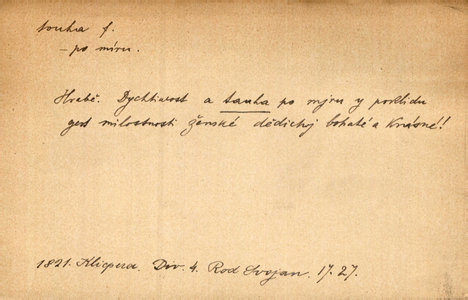 touha f.
– po míru.
Hrabě. Dychtivost a tauha po mjru y pokligdu
gest milostnosti ženské dědičky bohaté a krásné!
1821. Klicpera. Div. 4. Rod Svojan. 17. 27.